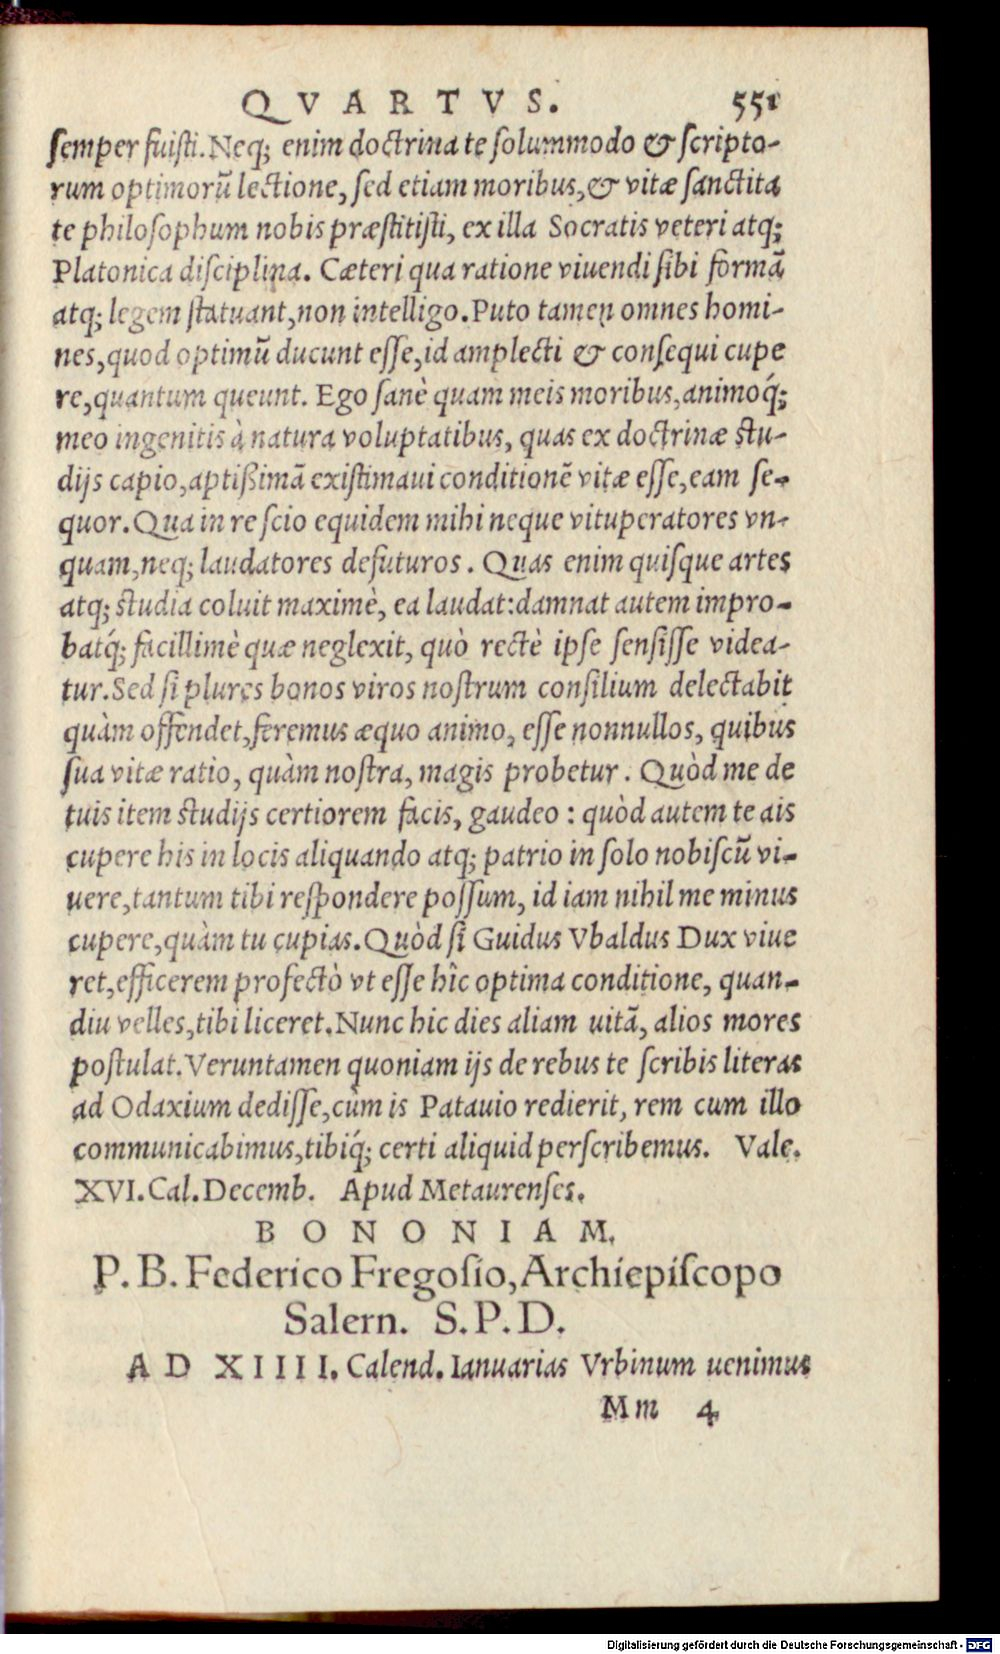 QVARTVS. 551
semper fuisti. Neq; enim doctrina te solummodo & scripto-
rum optimorũ lectione, sed etiam moribus, & vitæ sanctita
te philosophum nobis præstitisti, ex illa Socratis veteri atq;
Platonica disciplina. Cæteri qua ratione viuendi sibi formã
atq; legem statuant, non intelligo. Puto tamen omnes homi-
nes, quod optimũ ducunt esse, id amplecti & consequi cupe
re, quantum queunt. Ego sanè quam meis moribus, animoq́;
meo ingenitis à natura voluptatibus, quas ex doctrinæ stu-
dijs capio, aptißimã existimaui conditionẽ vitæ esse, eam se-
quor. Qua in re scio equidem mihi neque vituperatores vn-
quam, neq; laudatores defuturos. Quas enim quisque artes
atq; studia coluit maximè, ea laudat: damnat autem impro-
batq́; facillimè quæ neglexit, quò rectè ipse sensisse videa-
tur. Sed si plures bonos viros nostrum consilium delectabit
quàm offendet, feremus æquo animo, esse nonnullos, quibus
sua vitæ ratio, quàm nostra, magis probetur. Quòd me de
tuis item studijs certiorem facis, gaudeo: quòd autem te ais
cupere his in locis aliquando atq; patrio in solo nobiscũ vi-
uere, tantum tibi respondere possum, id iam nihil me minus
cupere, quàm tu cupias. Quòd si Guidus Vbaldus Dux viue
ret, efficerem profectò vt esse hîc optima conditione, quan-
diu velles, tibi liceret. Nunc hic dies aliam uitã, alios mores
postulat. Veruntamen quoniam ijs de rebus te scribis literas
ad Odaxium dedisse, cùm is Patauio redierit, rem cum illo
communicabimus, tibiq́; certi aliquid perscribemus. Vale.
XVI. Cal. Decemb. Apud Metaurenses.
BONONIAM.
P. B. Federico Fregosio, Archiepiscopo
Salern. S. P. D.
AD XIIII. Calend. Ianuarias Vrbinum uenimus
Mm 4
Digitalisierung gefördert durch die Deutsche Forschungsgemeinschaft - DFG